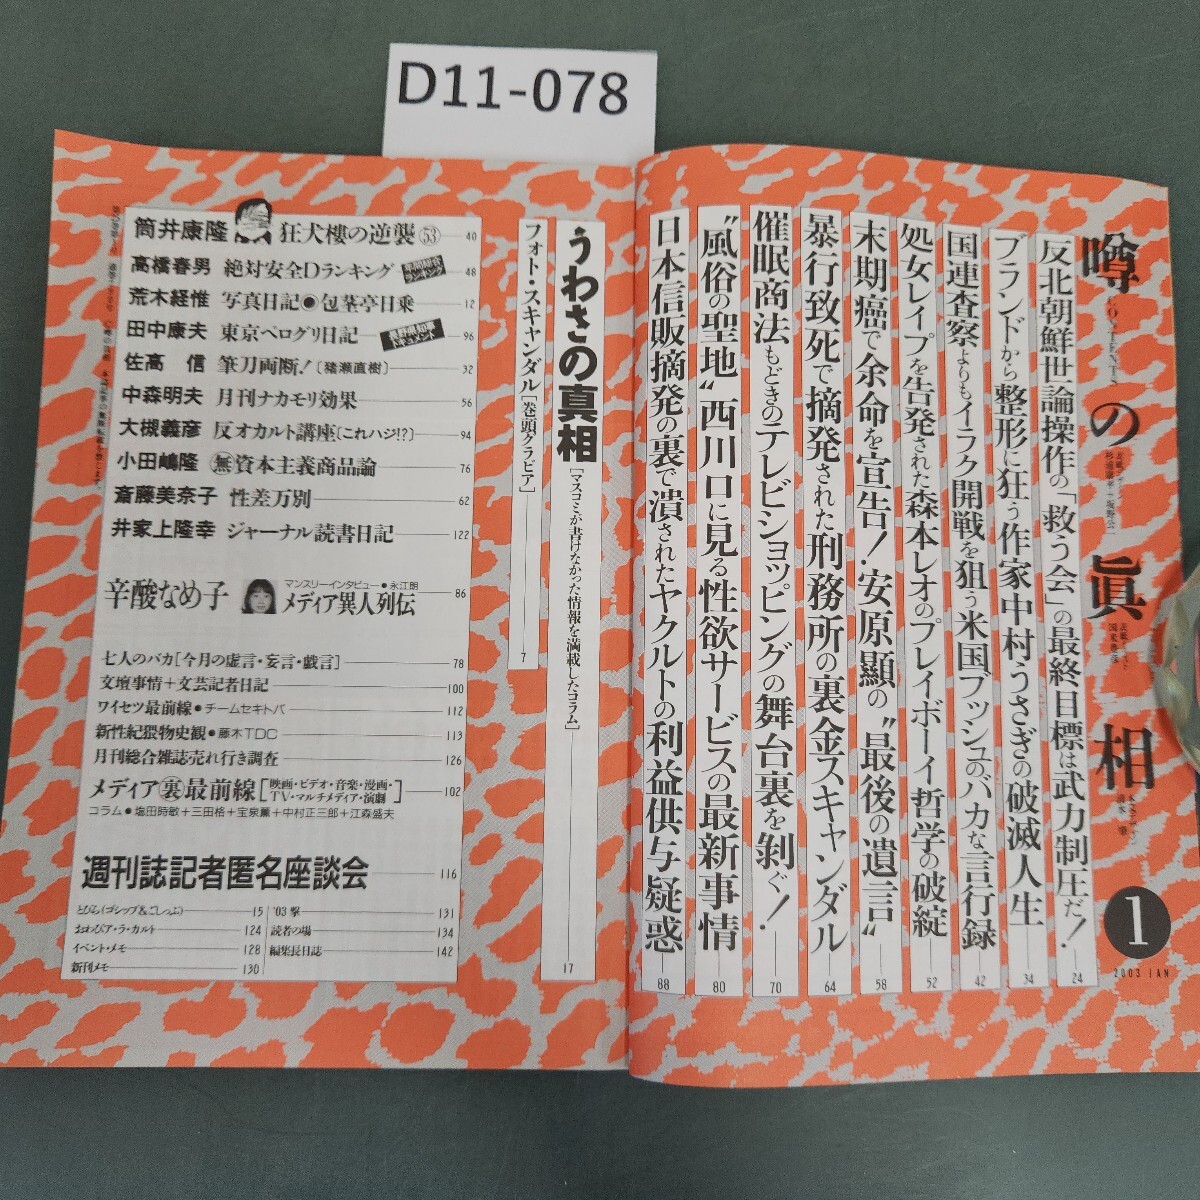 D11-078
噂の眞相
CONTENTS
1
2003 JAN
反北朝鮮世論操作の「救う会」の最終目標は武力制圧だ！ 24
ブランドから整形に狂う作家中村うさぎの破滅人生 34
国連査察よりもイラク開戦を狙う米国ブッシュのバカな言行録 42
処女レイプを告発された森本レオのプレイボーイ哲学の破綻 52
末期癌で余命を宣告！安原顯の〝最後の遺言〟 58
暴行致死で摘発された刑務所の裏金スキャンダル 64
催眠商法もどきのテレビショッピングの舞台裏を剝ぐ！ 70
〝風俗の聖地〟西川口に見る性欲サービスの最新事情 80
日本信販摘発の裏で潰されたヤクルトの利益供与疑惑 88
うわさの真相［マスコミが書けなかった情報を満載したコラム］ 17
フォト・スキャンダル［巻頭グラビア］ 7
筒井康隆 狂犬樓の逆襲 53 40
高橋春男 絶対安全Dランキング 48
荒木経惟 写真日記●包茎亭日乗 12
田中康夫 東京ペログリ日記 長野県知事ドキュメント 96
佐高 信 筆刀両断！〔猪瀬直樹〕 32
中森明夫 月刊ナカモリ効果 56
大槻義彦 反オカルト講座〔これハジ!?〕 94
小田嶋隆 ㊀無資本主義商品論 76
斎藤美奈子 性差万別 62
井家上隆幸 ジャーナル読書日記 122
辛酸なめ子 マンスリーインタビュー●永江朗
メディア異人列伝 86
七人のバカ［今月の虚言・妄言・戯言］ 78
文壇事情＋文芸記者日記 100
ワイセツ最前線●チームセキトバ 112
新性紀猥物史観●藤木TDC 113
月刊総合雑誌売れ行き調査 126
メディア裏最前線［映画・ビデオ・音楽・漫画・TV・マルチメディア・演劇］ 102
コラム●塩田時敏＋三田格＋宝泉薫＋中村正三郎＋江森盛夫
週刊誌記者匿名座談会 116
とびら（ゴシップ&ごしっぷ） 15
おわびア・ラ・カルト 124
イベント・メモ 128
新刊メモ 130
'03撃 131
読者の場 134
編集長日誌 142